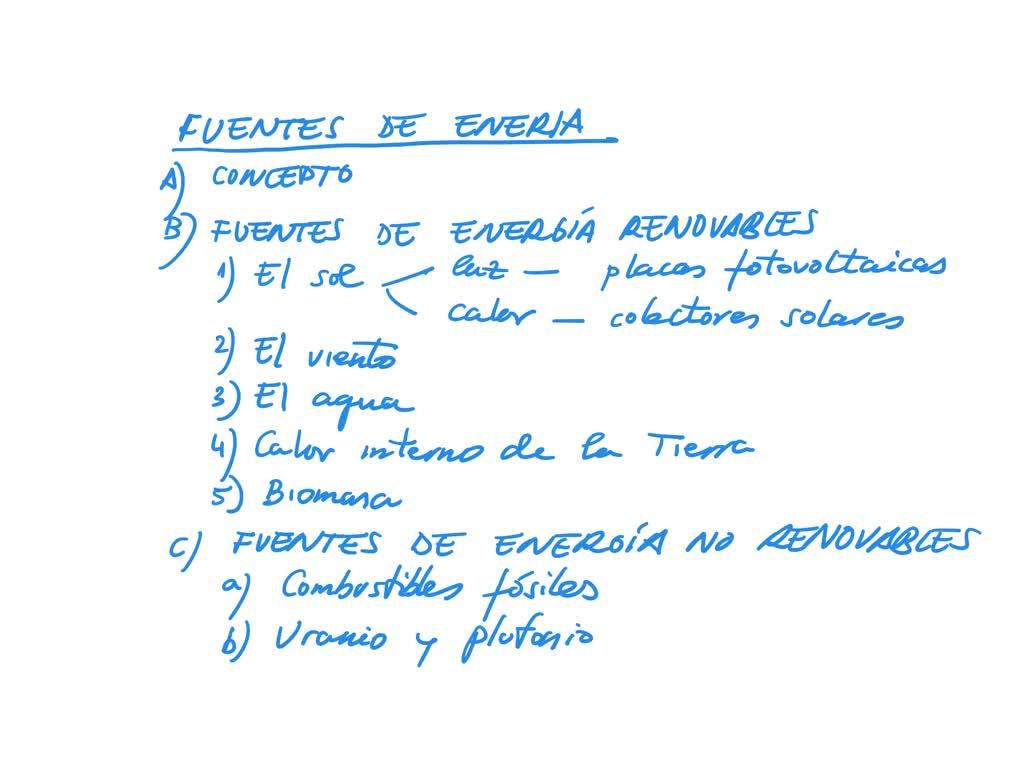 FUENTES DE ENERIA
A) CONCEPTO
B) FUENTES DE ENERGÍA RENOVABLES
1) El sol < luz — placas fotovoltaicas
calor — colectores solares
2) El viento
3) El agua
4) Calor interno de la Tierra
5) Biomasa
C) FUENTES DE ENERGÍA NO RENOVABLES
a) Combustibles fósiles
b) Uranio y plutonio